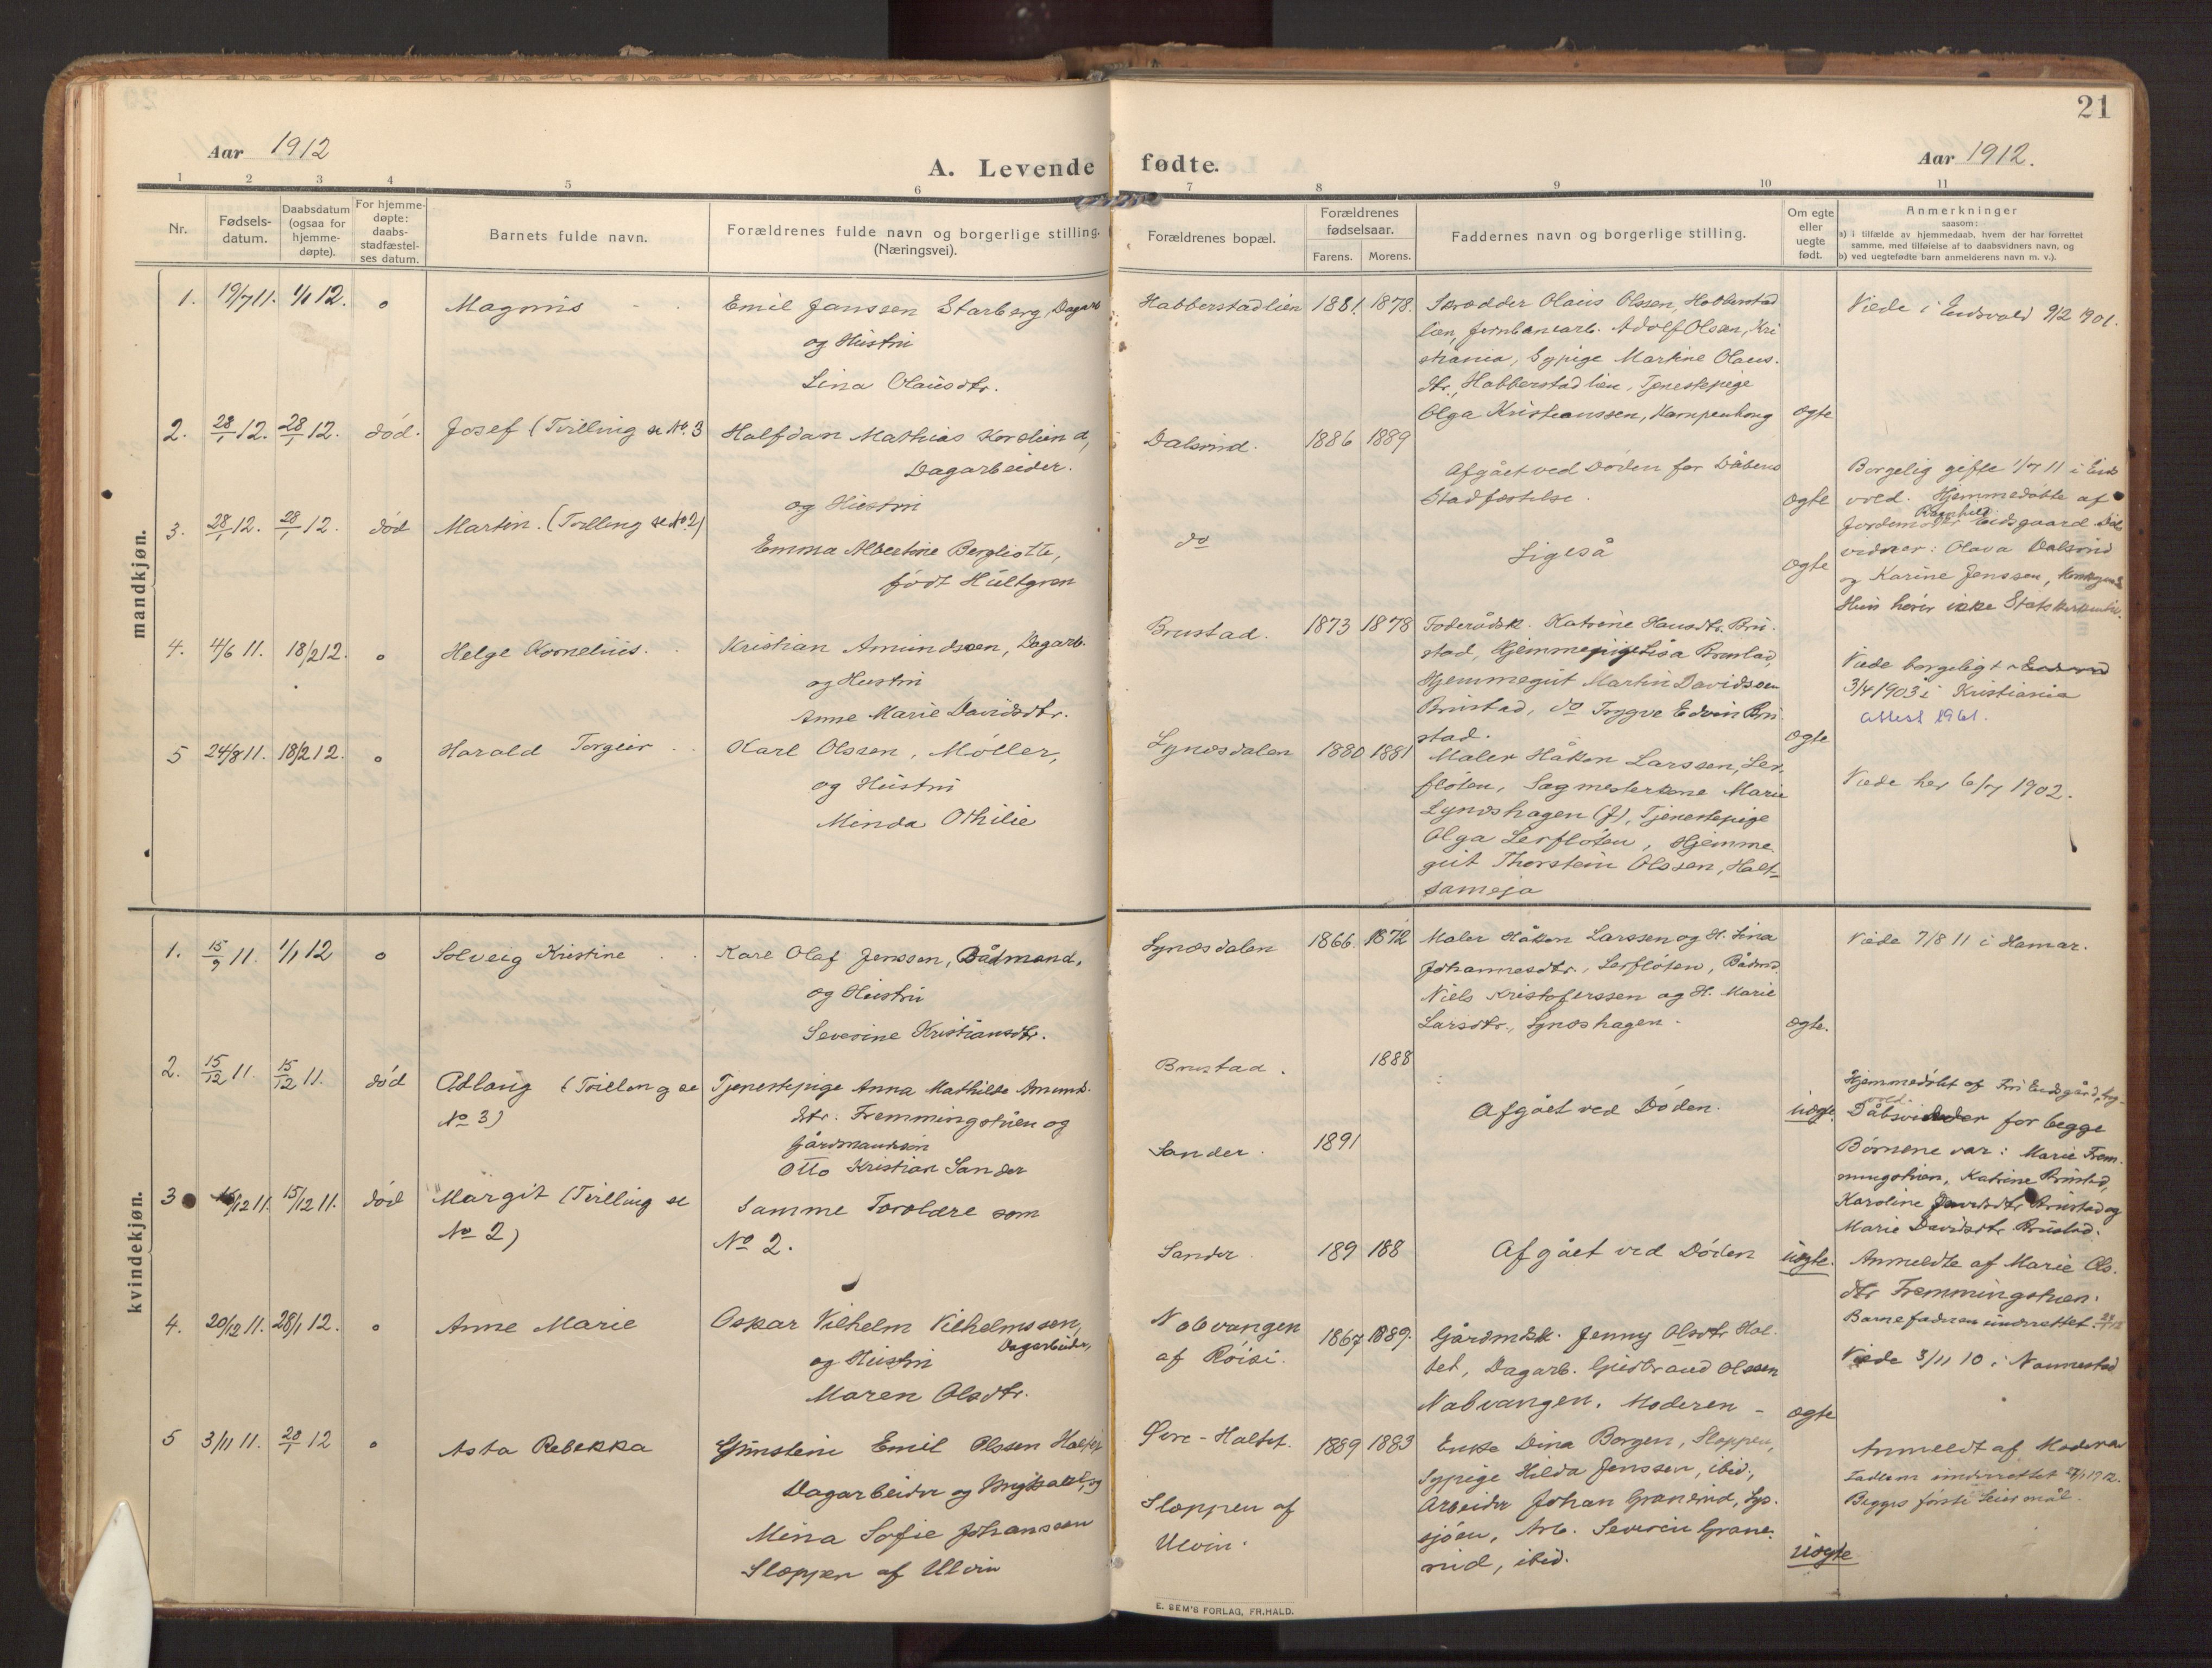 21
Aar 1912
A. Levende fødte.
Aar 1912.
1 2 3 4 5 6 7 8 9 10 11
Nr.
Fødsels-
datum.
Daabsdatum
(ogsaa for
hjemme-
døpte).
For hjemme-
døpte:
daabs-
stadfæstel-
ses datum.
Barnets fulde navn.
Forældrenes fulde navn og borgerlige stilling.
(Næringsvei).
Forældrenes bopæl.
Forældrenes
fødselsaar.
Farens. Morens.
Faddernes navn og borgerlige stilling.
Om egte
eller
uegte
født.
Anmerkninger
saasom:
a) i tilfælde av hjemmedaab, hvem der har forrettet
samme, med tilføielse af to daabsvidners navn, og
b) ved uegtefødte barn anmelderens navn m. v.).
mandkjøn.
1. 19/7 11. 1/1 12. o Magnus
Emil Janssen Starberg, Dagarb
og Hustru
Lina Olausdtr.
Habberstadlien 1881. 1878.
Skrædder Olaus Olssen, Habberstad
lien, Jernbanearb. Adolf Olsen, Kri
stiania, Sypige Martine Olaus.
dtr., Habberstadlien, Tjenestepige
Olga Kristianssen, Kampenhaug
ægte
Viede i Eidsvold 9/2 1901.
2. 28/1 12. 28/1 12. død. Josef (Tvilling se No. 3
Halfdan Mathias
Dagarbeider.
og Hustru
Emma Albertine Bergliotte,
født Hultgren
Dalsrud. 1886 1889
Afgået ved Døden før Dåbens
Stadfæstelse.
ægte
Borgelig gifte 1/7 11 i Eids
vold. Hjemmedøbte af
Jordemoder Ragnhild Eidsgaard
vidner: Olava Dalsrud
og Karine Jenssen,
Hun hører ikke
3. 28/1 12. 28/1 12. død Martin. (Tvilling se No 2)
do
Ligeså
ægte
4. 4/6 11. 18/2 12. o Helge Kornelius.
Kristian Amundssen, Dagarb.
og Hustru
Anne Marie Davidsdtr.
Brustad. 1873 1878
Foderådsk. Katrine Hansdtr. Bru.
stad, Hjemmepige Lisa Brustad,
Hjemmegut Martin Davidssen
Brustad, do Trygve Edvin Bru.
stad.
ægte
Viede borgeligt
3/4 1903 i Kristiania
Attest 1961.
5 24/8 11. 18/2 12. o Harald Torgeir
Karl Olssen, Møller,
og Hustru
Minda Othilie
Lynæsdalen 1880 1881
Maler Håkon Larssen, Ler.
fløten, Sagmesterkone Marie
Lynæshagen (J), Tjenestepige
Olga Lerfløten, Hjemme
gut Thorstein Olssen, Halt-
sameja
Viede her 6/7 1902.
kvindekjøn.
1. 15/9 11. 1/1 12 o Solveig Kristine
Karl Olaf Jenssen, Bådmand,
og Hustru
Severine Kristiansdtr.
Lynæsdalen 1866. 1872
Maler Håkon Larssen og H. Lina
Johannesdtr., Lerfløten, Bådmd.
Niels Kristoferssen og H. Marie
Larsdtr., Lynæshagen.
ægte.
Viede 7/8 11 i Hamar.
2. 15/12 11. 15/12 11. død Adlaug (Tvilling se
No 3)
Tjenestepige Anna Mathilde Amunds.
dtr. Fremmingstuen og
Gårdmandssøn
Otto Kristian Sander
Brustad. 1888
Sander. 1891
Afgået ved Døden.
uægte.
Hjemmedøbt af Fru Eidsgård,
Dåbsvidner for begge
Børnene var: Marie Frem.
mingstuen, Katrine Brustad,
Karoline Davidsdtr Brustad og
Marie Davidsdtr Brustad.
3 15/12 11. 15/12 11. død Margit (Tvilling se
No 2)
Samme Forældre som
No 2.
Sander 189 188
Afgået ved Døden
uægte.
Anmeldte af Marie Ols.
dtr Fremmingstuen.
Barnefaderen underrettet
4. 20/12 11. 28/1 12. o Anne Marie
Oskar Vilhelm Vilhelmssen,
Dagarbeider,
og Hustru
Maren Olsdtr.
Nabvangen
af Røisi.
1867 1889.
Gårdmdsk. Jenny Olsdtr Hol.
tet, Dagarb. Gudbrand Olssen
Nabvangen. Moderen -
ægte
Viede 3/11 10 i Nannestad
5 3/11 11. 28/1 12 o Asta Rebekka
Gunstein Emil Olssen
Dagarbeider og Ungkarl, og
Mina Sofie Johanssen
Sloppen af Ulvin
Øvre-Haltet.
Sloppen af
Ulvin.
1889 1883
Enke Dina Borgen, Sloppen,
Sypige Hilda Jenssen, ibid.,
Arbeider Johan Granerud, Lys.
sjøen, Arb. Severin Grane.
rud, ibid.
uægte
Anmeldt af Moderen
Faderen underrettet
Begges første Leiermål.
E. SEM'S FORLAG, FR.HALD.